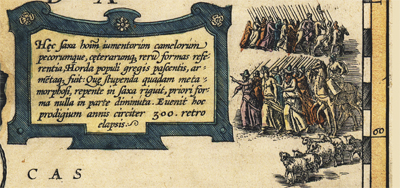 D A
Hęc saxa hoīm iumentorum camelorum
pecorumque, cęterarumq; rerū formas refe-
rentia, Horda populi gregis pascentis, ar-
mētaq; fuit: Quę stupenda quadam meta-
morphosi, repente in saxa riguit, priori for-
ma nulla in parte diminuta. Evenit hoc
prodigium annis circiter 300. retro
elapsis.
60
CAS